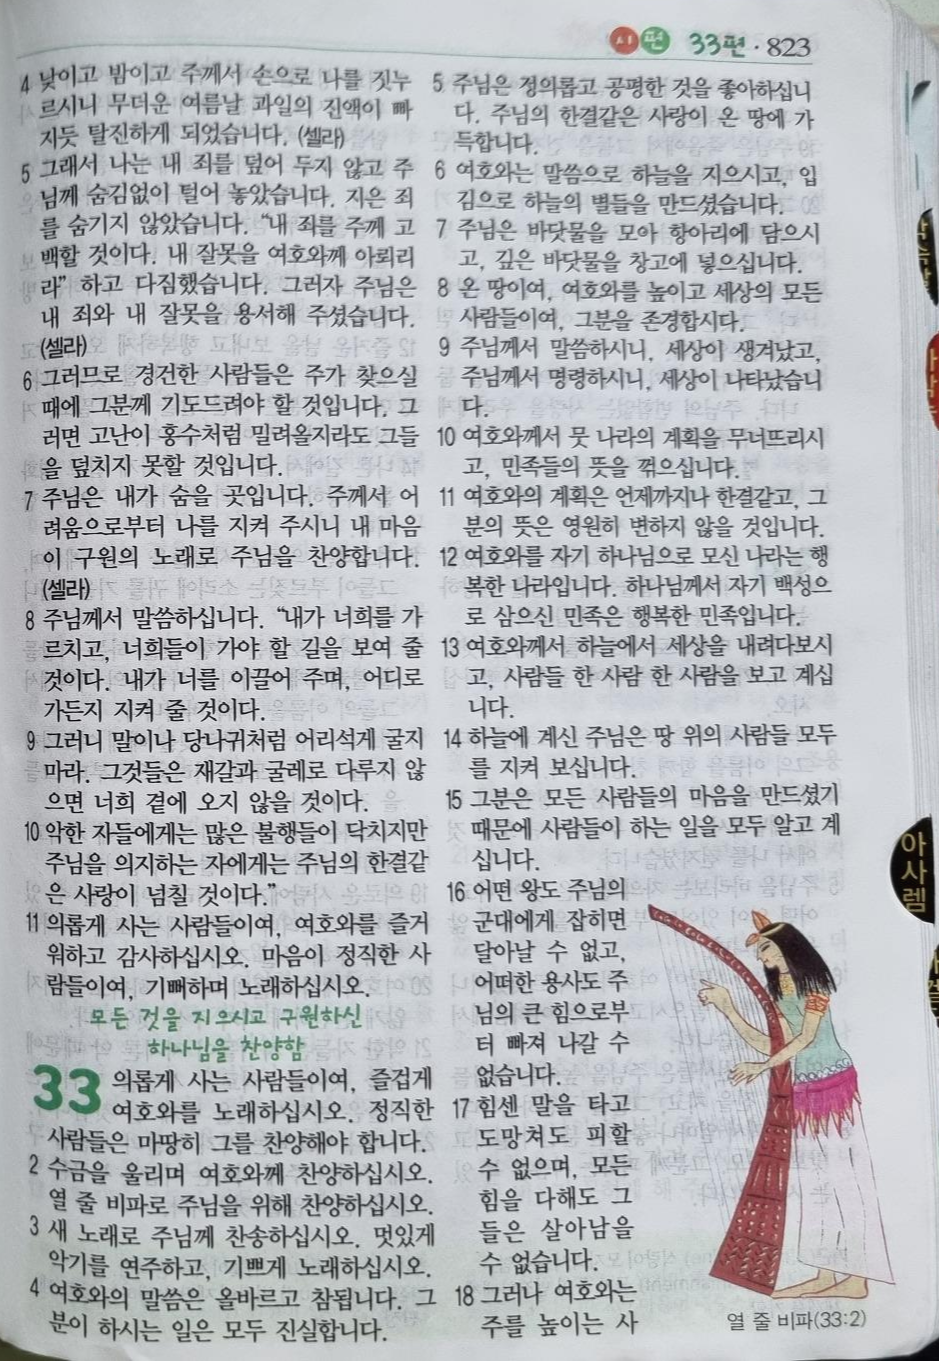 시편 33편 · 823
4 낮이고 밤이고 주께서 손으로 나를 짓누
르시니 무더운 여름날 과일의 진액이 빠
지듯 탈진하게 되었습니다. (셀라)
5 그래서 나는 내 죄를 덮어 두지 않고 주
님께 숨김없이 털어 놓았습니다. 지은 죄
를 숨기지 않았습니다. “내 죄를 주께 고
백할 것이다. 내 잘못을 여호와께 아뢰리
라” 하고 다짐했습니다. 그러자 주님은
내 죄와 내 잘못을 용서해 주셨습니다.
(셀라)
6 그러므로 경건한 사람들은 주가 찾으실
때에 그분께 기도드려야 할 것입니다. 그
러면 고난이 홍수처럼 밀려올지라도 그들
을 덮치지 못할 것입니다.
7 주님은 내가 숨을 곳입니다. 주께서 어
려움으로부터 나를 지켜 주시니 내 마음
이 구원의 노래로 주님을 찬양합니다.
(셀라)
8 주님께서 말씀하십니다. “내가 너희를 가
르치고, 너희들이 가야 할 길을 보여 줄
것이다. 내가 너를 이끌어 주며, 어디로
가든지 지켜 줄 것이다.
9 그러니 말이나 당나귀처럼 어리석게 굴지
마라. 그것들은 재갈과 굴레로 다루지 않
으면 너희 곁에 오지 않을 것이다.
10 악한 자들에게는 많은 불행들이 닥치지만
주님을 의지하는 자에게는 주님의 한결같
은 사랑이 넘칠 것이다.”
11 의롭게 사는 사람들이여, 여호와를 즐거
워하고 감사하십시오. 마음이 정직한 사
람들이여, 기뻐하며 노래하십시오.
모든 것을 지으시고 구원하신
하나님을 찬양함
33 의롭게 사는 사람들이여, 즐겁게
여호와를 노래하십시오. 정직한
사람들은 마땅히 그를 찬양해야 합니다.
2 수금을 울리며 여호와께 찬양하십시오.
열 줄 비파로 주님을 위해 찬양하십시오.
3 새 노래로 주님께 찬송하십시오. 멋있게
악기를 연주하고, 기쁘게 노래하십시오.
4 여호와의 말씀은 올바르고 참됩니다. 그
분이 하시는 일은 모두 진실합니다.
5 주님은 정의롭고 공평한 것을 좋아하십니
다. 주님의 한결같은 사랑이 온 땅에 가
득합니다.
6 여호와는 말씀으로 하늘을 지으시고, 입
김으로 하늘의 별들을 만드셨습니다.
7 주님은 바닷물을 모아 항아리에 담으시
고, 깊은 바닷물을 창고에 넣으십니다.
8 온 땅이여, 여호와를 높이고 세상의 모든
사람들이여, 그분을 존경합시다.
9 주님께서 말씀하시니, 세상이 생겨났고,
주님께서 명령하시니, 세상이 나타났습니
다.
10 여호와께서 뭇 나라의 계획을 무너뜨리시
고, 민족들의 뜻을 꺾으십니다.
11 여호와의 계획은 언제까지나 한결같고, 그
분의 뜻은 영원히 변하지 않을 것입니다.
12 여호와를 자기 하나님으로 모신 나라는 행
복한 나라입니다. 하나님께서 자기 백성으
로 삼으신 민족은 행복한 민족입니다.
13 여호와께서 하늘에서 세상을 내려다보시
고, 사람들 한 사람 한 사람을 보고 계십
니다.
14 하늘에 계신 주님은 땅 위의 사람들 모두
를 지켜 보십니다.
15 그분은 모든 사람들의 마음을 만드셨기
때문에 사람들이 하는 일을 모두 알고 계
십니다.
16 어떤 왕도 주님의
군대에게 잡히면
달아날 수 없고,
어떠한 용사도 주
님의 큰 힘으로부
터 빠져 나갈 수
없습니다.
17 힘센 말을 타고
도망쳐도 피할
수 없으며, 모든
힘을 다해도 그
들은 살아남을
수 없습니다.
18 그러나 여호와는
주를 높이는 사
열 줄 비파(33:2)
아사렘